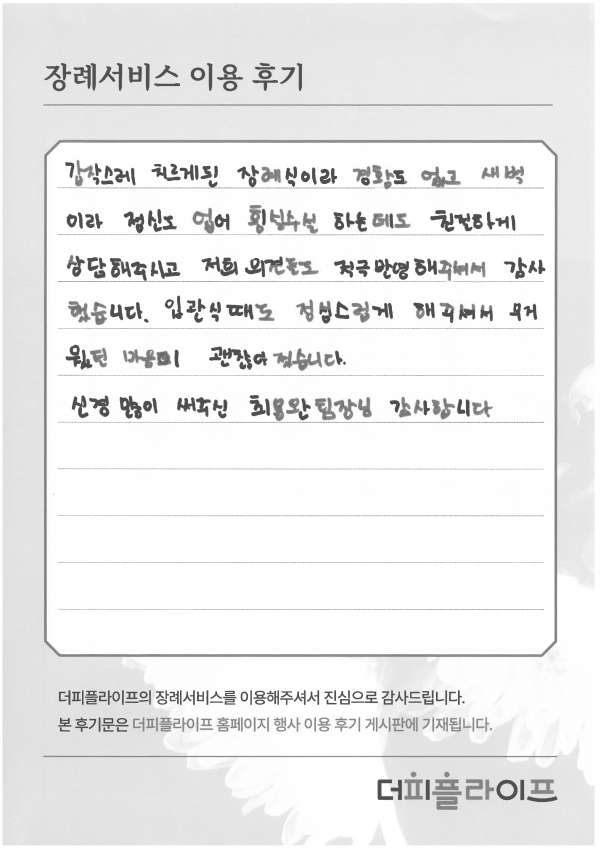 장례서비스 이용 후기
갑작스레 치르게된 장례식이라 경황도 없고 새벽
이라 정신도 없어 횡설수설 하는데도 친절하게
상담해주시고 저희 의견들도 적극 반영해주셔서 감사
했습니다. 입관식때도 정성스럽게 해주셔서 무거
웠던 마음이 괜찮아 졌습니다.
신경 많이 써주신 최용완팀장님 감사합니다
더피플라이프의 장례서비스를 이용해주셔서 진심으로 감사드립니다.
본 후기문은 더피플라이프 홈페이지 행사 이용 후기 게시판에 기재됩니다.
더피플라이프